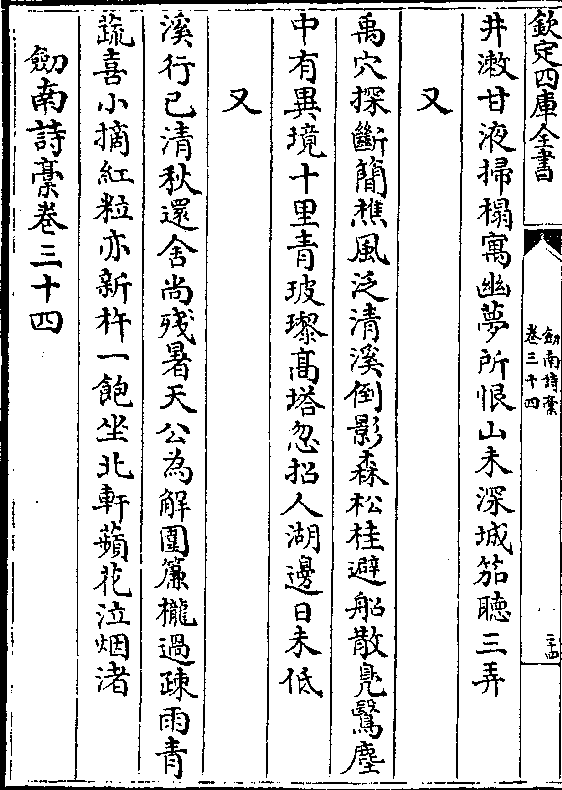 欽定四庫全書
劒南詩稾
卷三十四
三十四
井漱甘液掃榻寓幽夢所恨山未深城笳聽三弄
又
禹穴探斷簡樵風泛清溪倒影森松桂避船散鳬鷖塵
中有異境十里青玻瓈髙塔忽招人湖邊日未低
又
溪行已清秋還舍尚殘暑天公為解圍簾櫳過疎雨青
蔬喜小摘紅粒亦新杵一飽坐北軒蘋花泣烟渚
劒南詩稾卷三十四